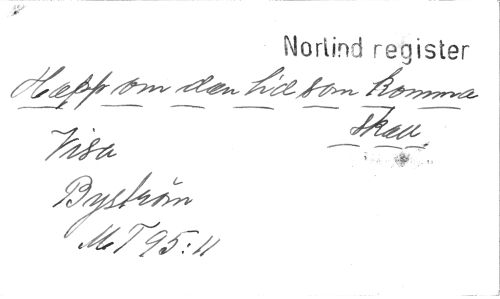 Norlind register
Hopp om den tid som komma
skall.
Visa
Byström
MT 95:11